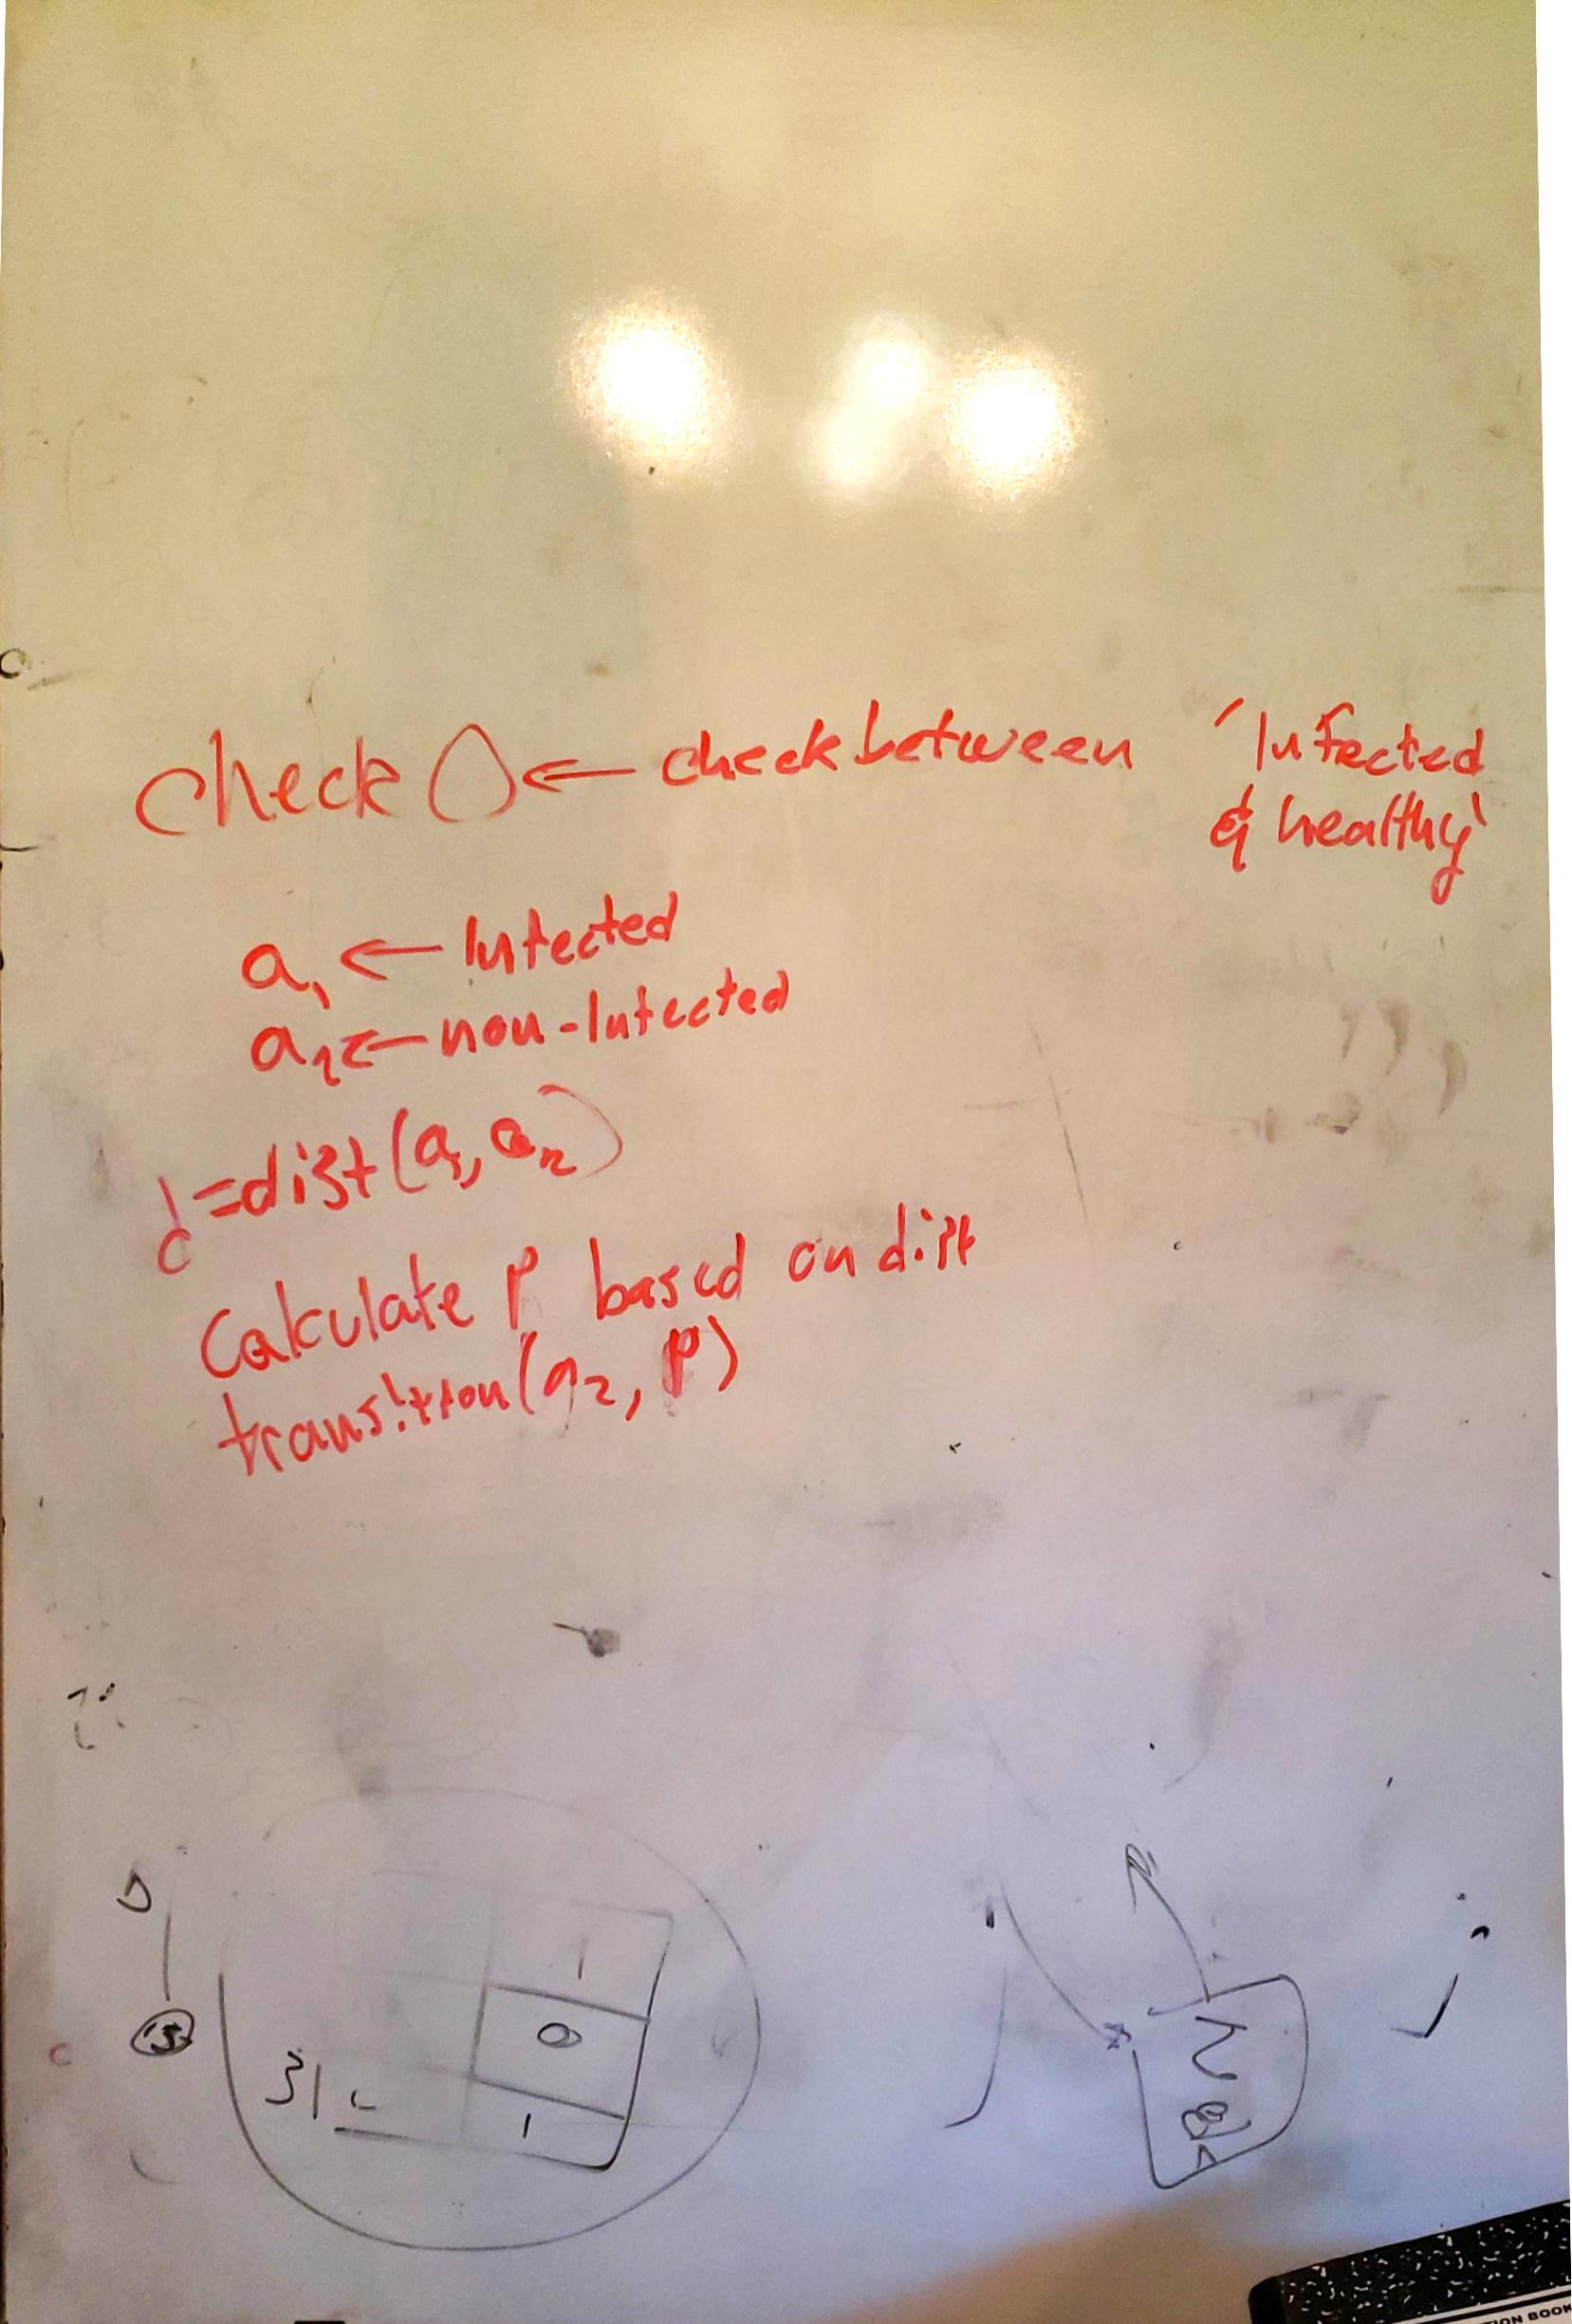 check() ← check between 'Infected
& healthy'
a₁ ← Infected
a₂ ← non-Infected
d = dist(a₁, a₂)
Calculate P based on dist
transition(a₂, P)
1
0
1
ION BOOK